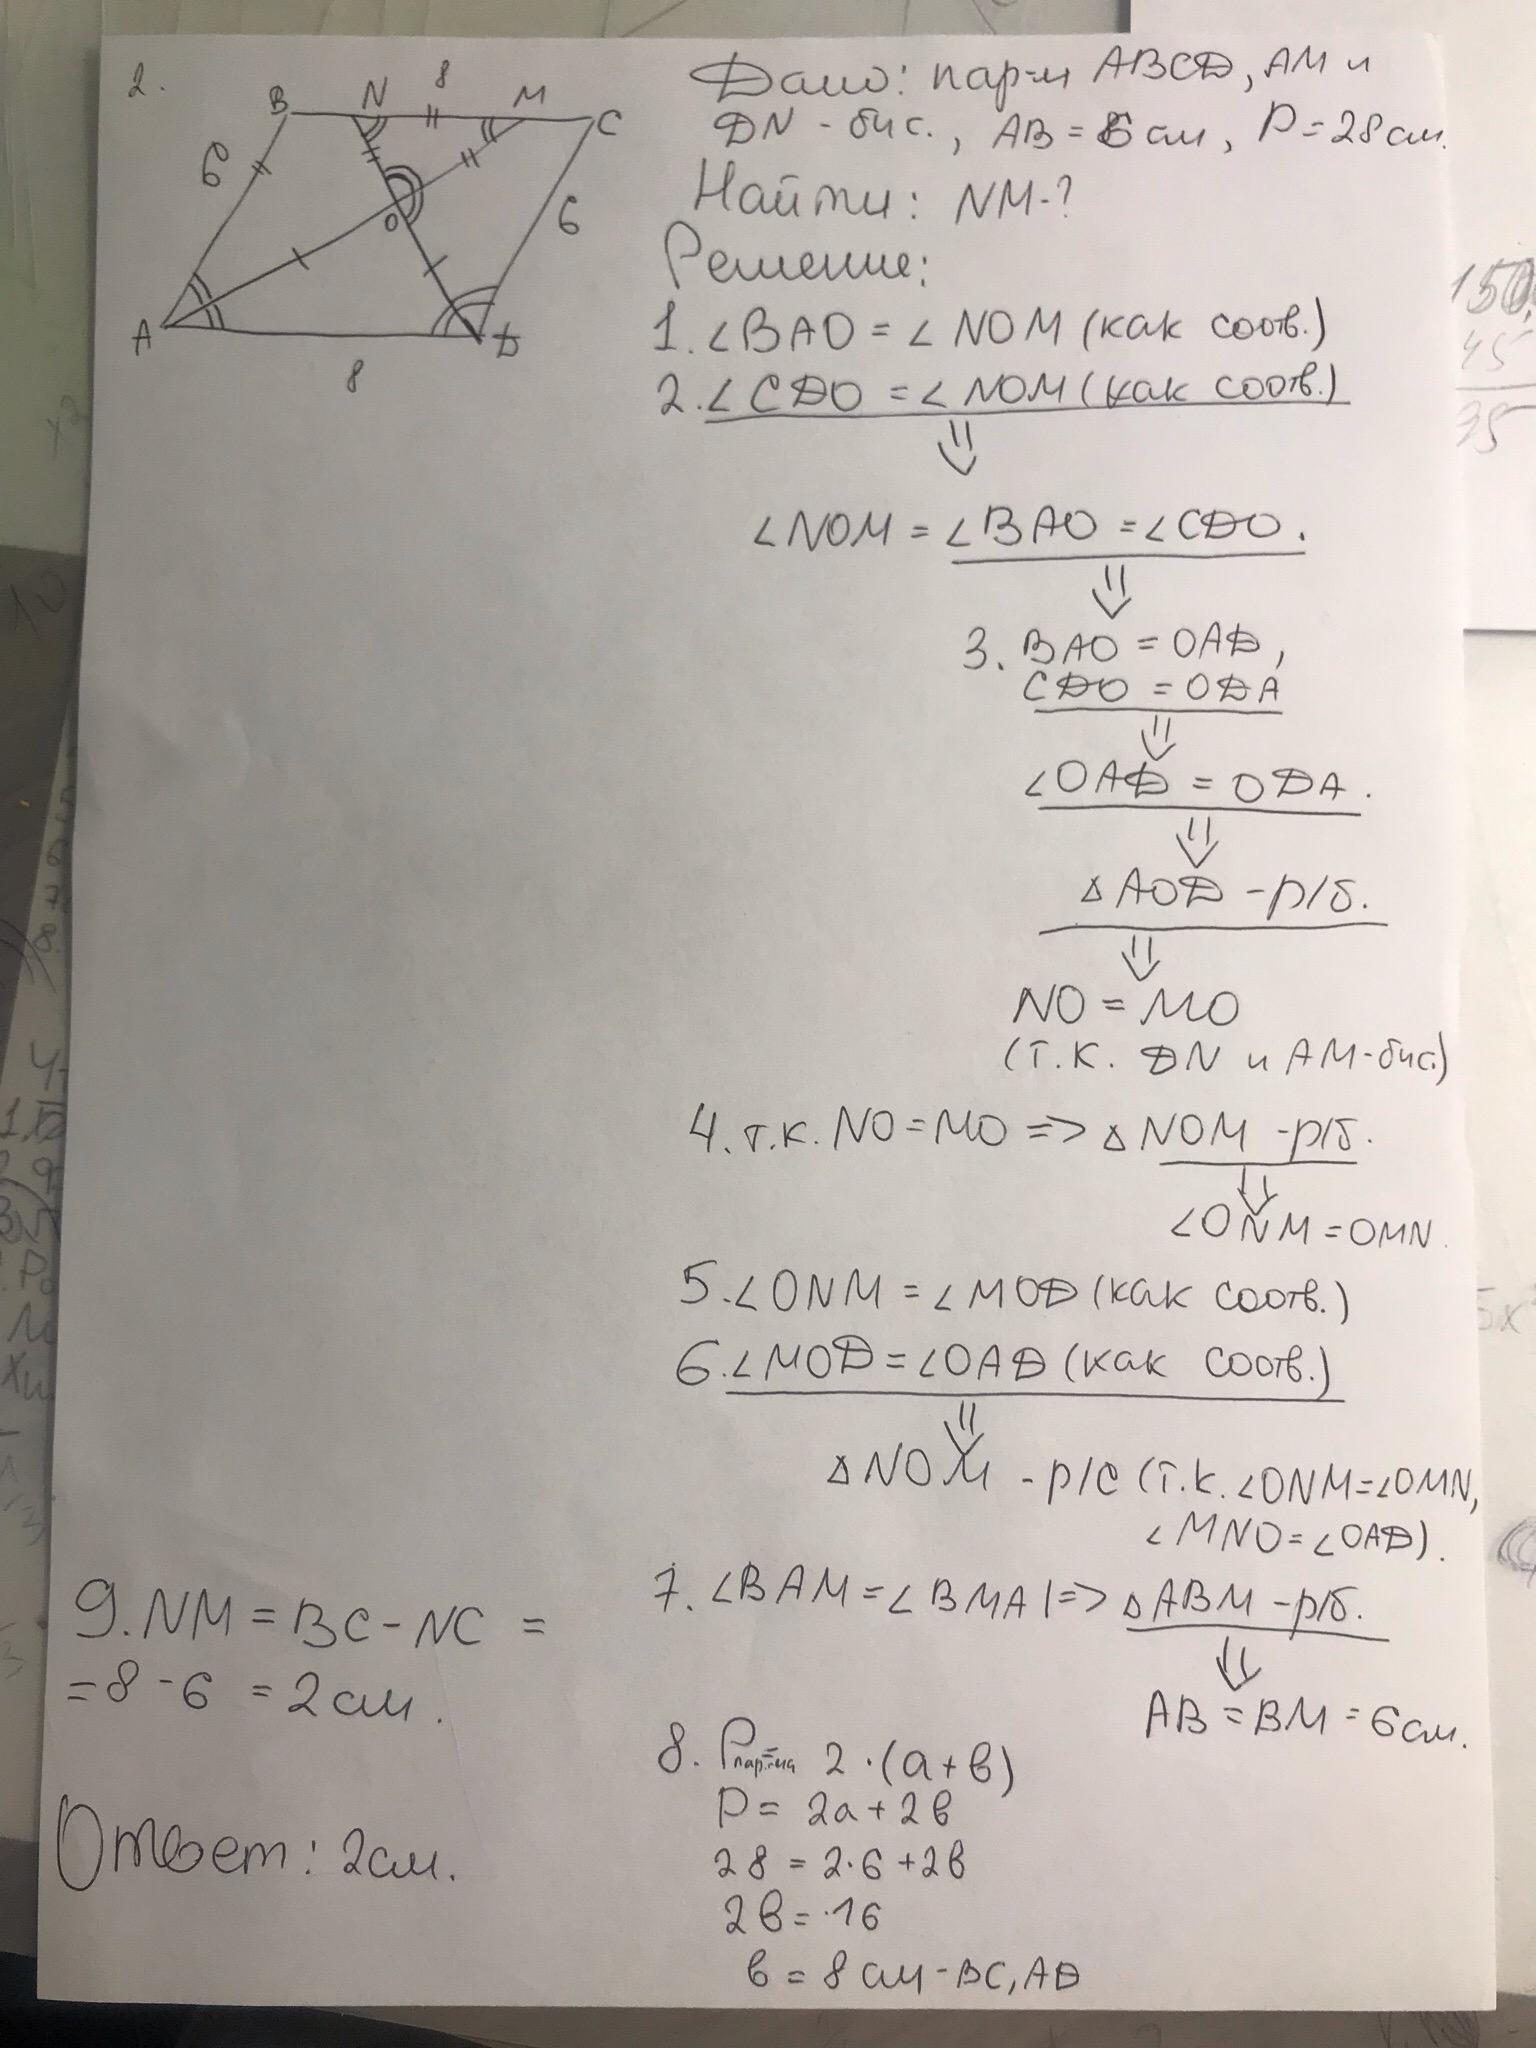 2.
B N 8 M C
6
6
O
A D
8
Дано: пар-м ABCD, AM и
DN - бис., AB = 6 см, P = 28 см.
Найти: NM-?
Решение:
1. ∠BAO = ∠NOM (как соотв.)
2. ∠CDO = ∠NOM (как соотв.)
⇓
∠NOM = ∠BAO = ∠CDO.
⇓
3. BAO = OAD,
CDO = ODA
⇓
∠OAD = ODA.
⇓
△AOD - р/б.
⇓
NO = MO
(т.к. DN и AM-бис.)
4. т.к. NO = MO => △NOM - р/б.
⇓
∠ONM = OMN.
5. ∠ONM = ∠MOD (как соотв.)
6. ∠MOD = ∠OAD (как соотв.)
⇓
△NOM - р/с (т.к. ∠ONM = ∠OMN,
∠MNO = ∠OAD).
7. ∠BAM = ∠BMA |=> △ABM - р/б.
⇓
AB = BM = 6 см.
8. Pпар-ма = 2 · (a + b)
P = 2a + 2b
28 = 2·6 + 2b
2b = 16
b = 8 см - BC, AD
9. NM = BC - NC =
= 8 - 6 = 2 см.
Ответ: 2 см.